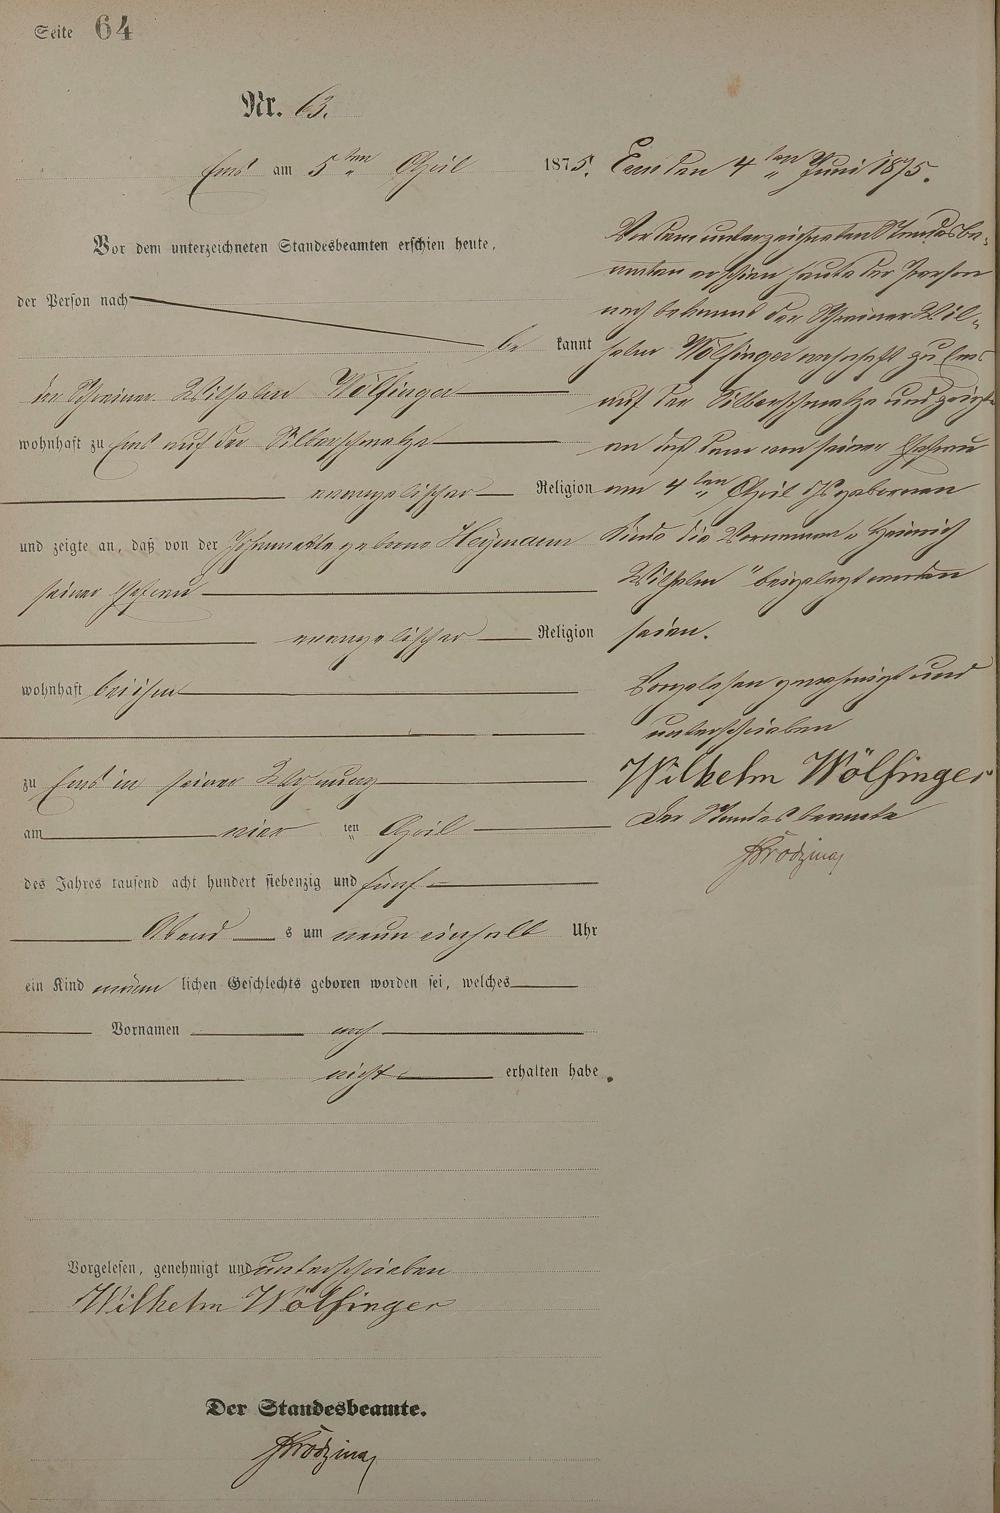 Seite 64
Nr. 63.
Ems am 5ten April 1875.
Vor dem unterzeichneten Standesbeamten erschien heute,
der Person nach
be kannt
der Schreiner Wilhelm Wölfinger
wohnhaft zu Ems auf der Silberschmelze
evangelischer Religion
und zeigte an, daß von der geborne Heymann
seiner Ehefrau
evangelischer Religion
wohnhaft bei ihm
zu Ems in seiner Wohnung
am vier ten April
des Jahres tausend acht hundert siebenzig und fünf
Abend s um neun einhalb Uhr
ein Kind männ lichen Geschlechts geboren worden sei, welches
Vornamen noch
nicht erhalten habe.
Vorgelesen, genehmigt und unterschrieben
Wilhelm Wölfinger
Der Standesbeamte.
Ems den 4ten Juni 1875.
Vor dem unterzeichneten Standesbe-
amten erschien heute der Person
nach bekannt der Schreiner Wil-
helm Wölfinger wohnhaft zu Ems
auf der Silberschmelze und zeigte
an daß dem von seiner Ehefrau
am 4ten April geborenen
Kinde die Vornamen „Heinrich
Wilhelm" beigelegt worden
seien.
Vorgelesen genehmigt und
unterschrieben
Wilhelm Wölfinger
Der Standesbeamte